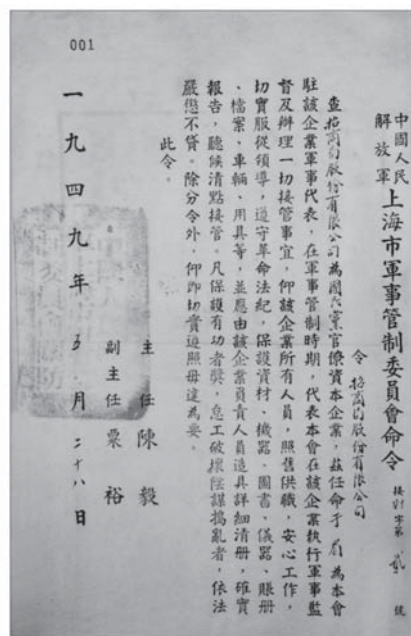 001
中國人民
解放軍
上海市軍事管制委員會命令
接 字第 貳 號
令 招商局股份有限公司
查招商局股份有限公司為國民黨官僚資本企業,茲任命于 為本會
駐該企業軍事代表,在軍事管制時期,代表本會在該企業執行軍事監
督及辦理一切接管事宜,仰該企業所有人員,照舊供職,安心工作,
切實服從領導,遵守革命法紀,保護資材、機器、圖書、儀器、賬册
、檔案、車輛、用具等,並應由該企業負責人員造具詳細清册,確實
報告,聽候清點接管。凡保護有功者獎,怠工破壞陰謀搗亂者,依法
嚴懲不貸。除分令外,仰即切實遵照毋違為要。
此令。
主任 陳毅
副主任 粟裕
一九四九年 五 月 二十八 日